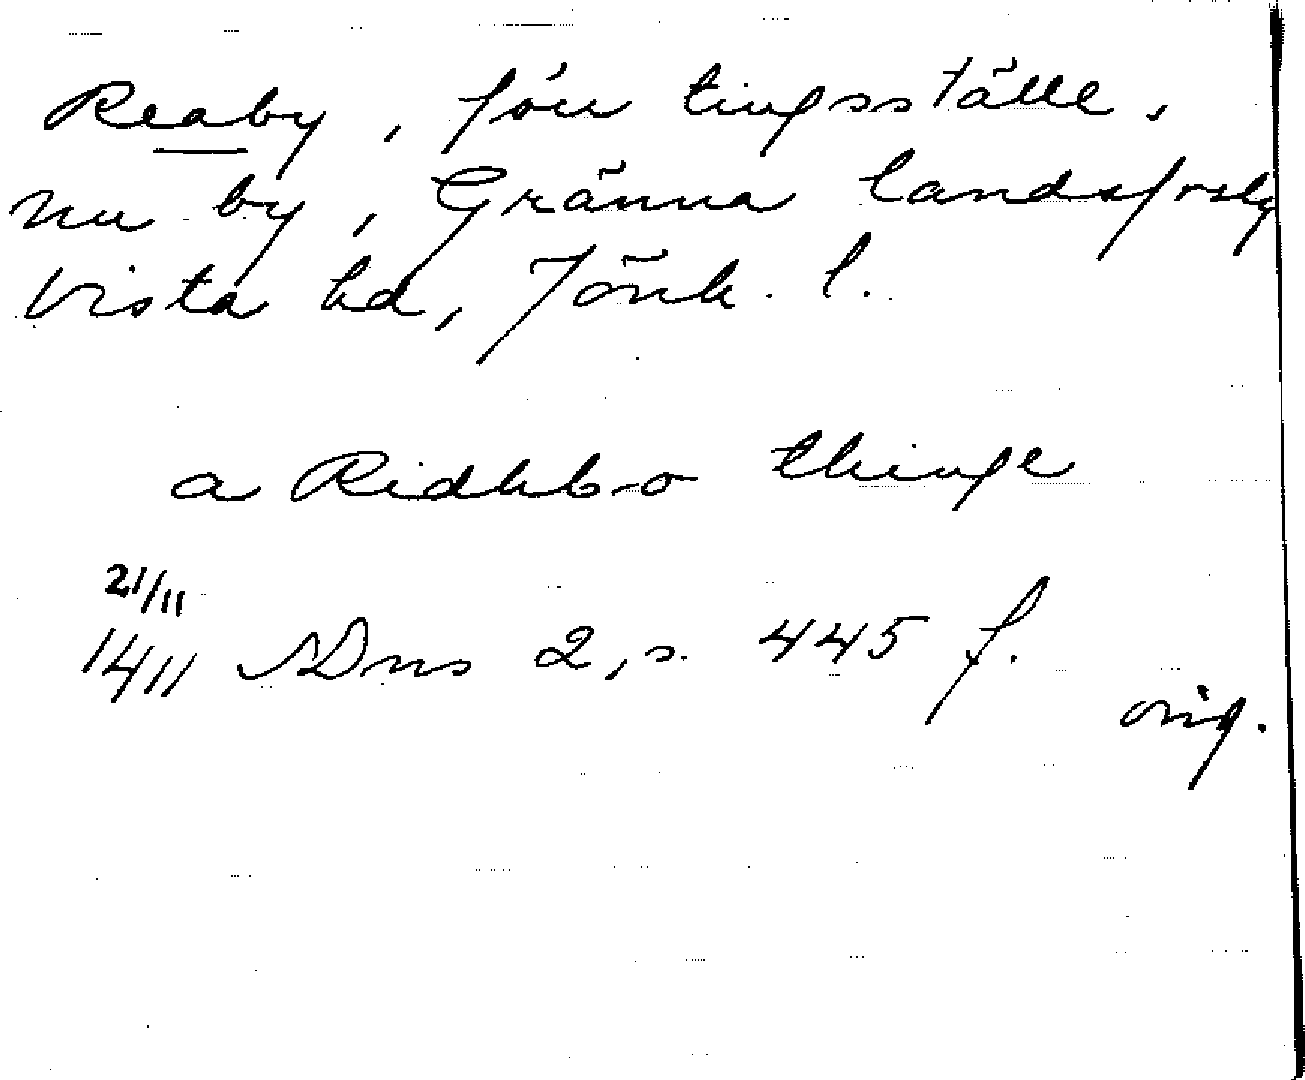 Reaby, förr tingsställe,
nu by, Gränna landsförslg
Vista hd, Jönk. l.
a Ridhbo thinge
21/11
1411 SDns 2, s. 445 f.
orig.